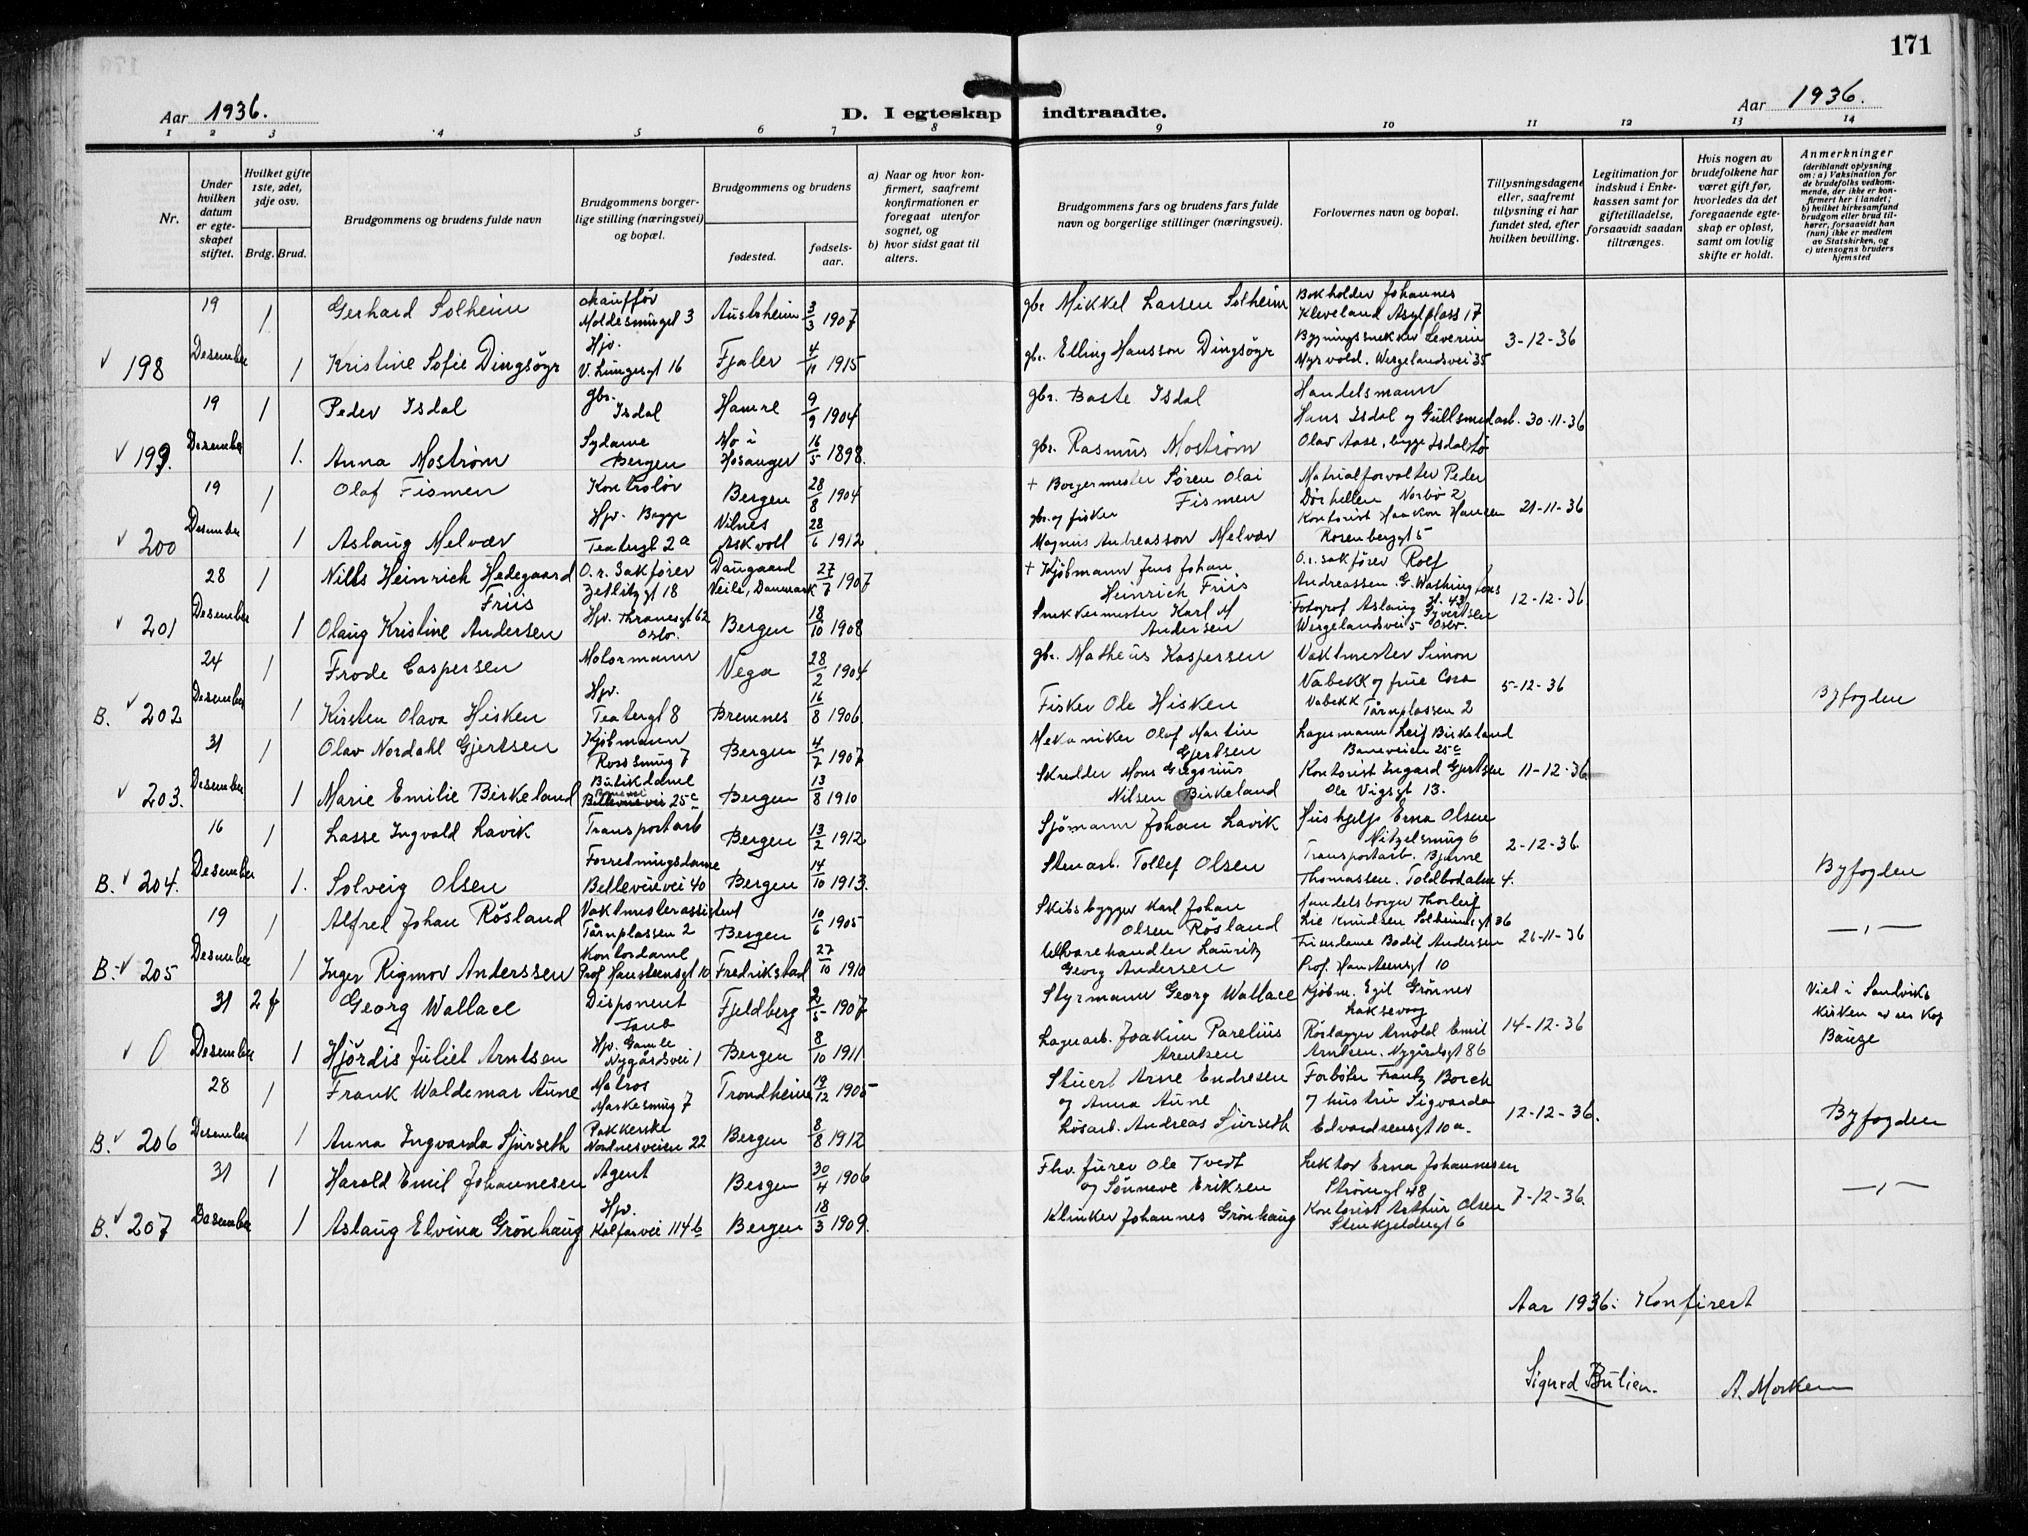 171
Aar 1936.
D. I egteskap indtraadte.
Aar 1936.
1 2 3 4 5 6 7 8 9 10 11 12 13 14
Nr.
Under hvilken datum er egteskapet stiftet.
Hvilket gifte 1ste, 2det, 3dje osv.
Brdg. Brud.
Brudgommens og brudens fulde navn
Brudgommens borgerlige stilling (næringsvei) og bopæl.
Brudgommens og brudens
fødested.
fødselsaar.
a) Naar og hvor konfirmert, saafremt konfirmationen er foregaat utenfor sognet, og
b) hvor sidst gaat til alters.
Brudgommens fars og brudens fars fulde navn og borgerlige stillinger (næringsvei).
Forlovernes navn og bopæl.
Tillysningsdagene eller, saafremt tillysning ei har fundet sted, efter hvilken bevilling.
Legitimation for indskud i Enkekassen samt for giftetilladelse, forsaavidt saadan tiltrænges.
Hvis nogen av brudefolkene har været gift før, hvorledes da det foregaaende egteskap er opløst, samt om lovlig skifte er holdt.
Anmerkninger
(deriblandt oplysning om: a) Vaksination for de brudefolks vedkommende, der ikke er konfirmert her i landet; b) hvilket kirkesamfund brudgom eller brud tilhører, forsaavidt han (hun) ikke er medlem av Statskirken, og c) utensogns bruders hjemsted
19 1 Gerhard Solheim chauffør Moldesmuget 3 Austrheim 3/3 1907 gbr Mikkel Larsen Solheim Bokholder Johannes Kleveland Asylplass 17
v 198 Desember 1 Kristine Sofie Dingsøyr Hjv. V. Lungegt 16 Fjaler 4/11 1915 gbr. Elling Hansson Dingsøyr Bygningssnekker Severin Myrvold. Wergelandsvei 35 3-12-36
19 1 Peder Isdal gbr. Isdal Hamre 9/9 1904 gbr. Baste Isdal Handelsmann Hans Isdal og Gullsmedarb. 30-11-36
v 199. Desember 1. Anna Mostrøm Sydame Bergen Mo i Hosanger 16/5 1898. gbr. Rasmus Mostrøm Olav Aase, begge Isdalstø
19 1 Olaf Fismen Kontrolør Bergen 28/8 1904 + Borgermester Søren Olai Fismen Matrialforvalter Peder Dørhellen Norbø 2
v 200 Desember 1 Aslaug Melvær Hjv. Begge Teatergt 2a Vilnes Askvoll 28/6 1912 gbr. og fisker Magnus Andreasson Melvær Kontorist Haakon Hansen Rosenberggt 5 21-11-36
28 1 Nills Heinrich Hedegaard Friis O.r. Sakfører Zetlitzgt 18 Daugaard Veile, Danmark 27/7 1907 + Kjøbmann Jens Johan Heinrich Friis O.r. sakfører Rolf Andreassen. G. Washingtons pl. 43
v 201 Desember 1 Olaug Kristine Andersen Hjv. Thranesgt 62 Oslo. Bergen 18/10 1908 Snekkermester Karl M Andersen Fotograf Aslaug Syvertsen Wergelandsvei 5 Oslo. 12-12-36.
24 1 Frode Caspersen Motormann Vega 28/2 1904 gbr. Matheus Kaspersen Vaktmester Simon Vabekk og frue Cora
B. v 202 Desember 1 Kirsten Olava Hisken Hjv. Teatergt 8 Bremnes 16/8 1906. Fisker Ole Hisken Vabekk Tårnplassen 2 5-12-36 Byfogden
31 1 Olav Nordahl Gjertsen Kjøbmann Rossmug 7 Bergen 4/7 1907 Mekaniker Olaf Martin Gjertsen Lagermann Leif Birkeland Baneveien 25c
v 203. Desember 1 Marie Emilie Birkeland Butikdame 25c Bergen 13/8 1910 Skredder Mons Gregorius Nilsen Birkeland Kontorist Ingard Gjertsen Ole Vigsgt 13. 11-12-36
16 1 Lasse Ingvald Lavik Transportarb Bergen 13/2 1912 Sjømann Johan Lavik Hushjelp Erna Olsen Nitzelsmug 6
B. v 204. Desember 1. Solveig Olsen Forretningsdame Bellevuevei 40 Bergen 14/10 1913. Stenarb. Tollef Olsen Transportarb. Bjarne Thomassen. Toldbodalm 4. 2-12-36. Byfogden
19 1 Alfred Johan Røsland Vaktmesterassistent Tårnplassen 2 Bergen 10/6 1905 Skibsbygger Karl Johan Olsen Røsland Handelsborger Thorleif Lie Knudsen Solheimsgt 36
B. v 205 Desember 1 Inger Rigmor Anderssen Kontordame Prof Hansteensgt 10 Fredrikstad 27/10 1910 Uekvarehandler Lauritz Georg Andersen Frisørdame Bodil Andersen Prof. Hansteensgt 10 26-11-36 —"—
31 2 f Georg Wallace Disponent Taub Fjeldberg 2/5 1907 Styrmann Georg Wallace Kjøbm. Egil Grønner Laksevaag Viet i Sandviks Kirken av res Kap Bauge
v 0 Desember 1 Hjördis Juliet Arntsen Hjv. Gamle Nygårdsvei 1 Bergen 8/10 1911. Lagerarb. Joakim Parelius Arentsen Rörlegger Arnold Emil Arntsen. Nygårdsgt 86 14-12-36
28 1 Frank Waldemar Aune Matros Markesmug 7 Trondheim 19/12 1905 Stuert Arne Endresen og Anna Aune Forbøter Frantz Borch og hustru Sigvarda
B. v 206 Desember 1 Anna Ingvarda Sjurseth Pakkerske Nordnesveien 22 Bergen 8/8 1912 Løsarb. Andreas Sjurseth Edvardsensgt 10a. 12-12-36. Byfogden
31 1 Harald Emil Johannesen Agent Bergen 30/4 1906 Fhv. furer Ole Tvedt og Sønneve Eriksen Lektor Erna Johannesen Strømgt 48
B. v 207 Desember 1 Aslaug Elvina Grønhaug Hjv. Kalfarvei 114b Bergen 18/3 1909. Klinker Johannes Grønhaug Kontorist Arthur Olsen Stenkjeldergt 6 7-12-36. —"—
Aar 1936: Konfirert
Sigurd Bulien. A. Morken